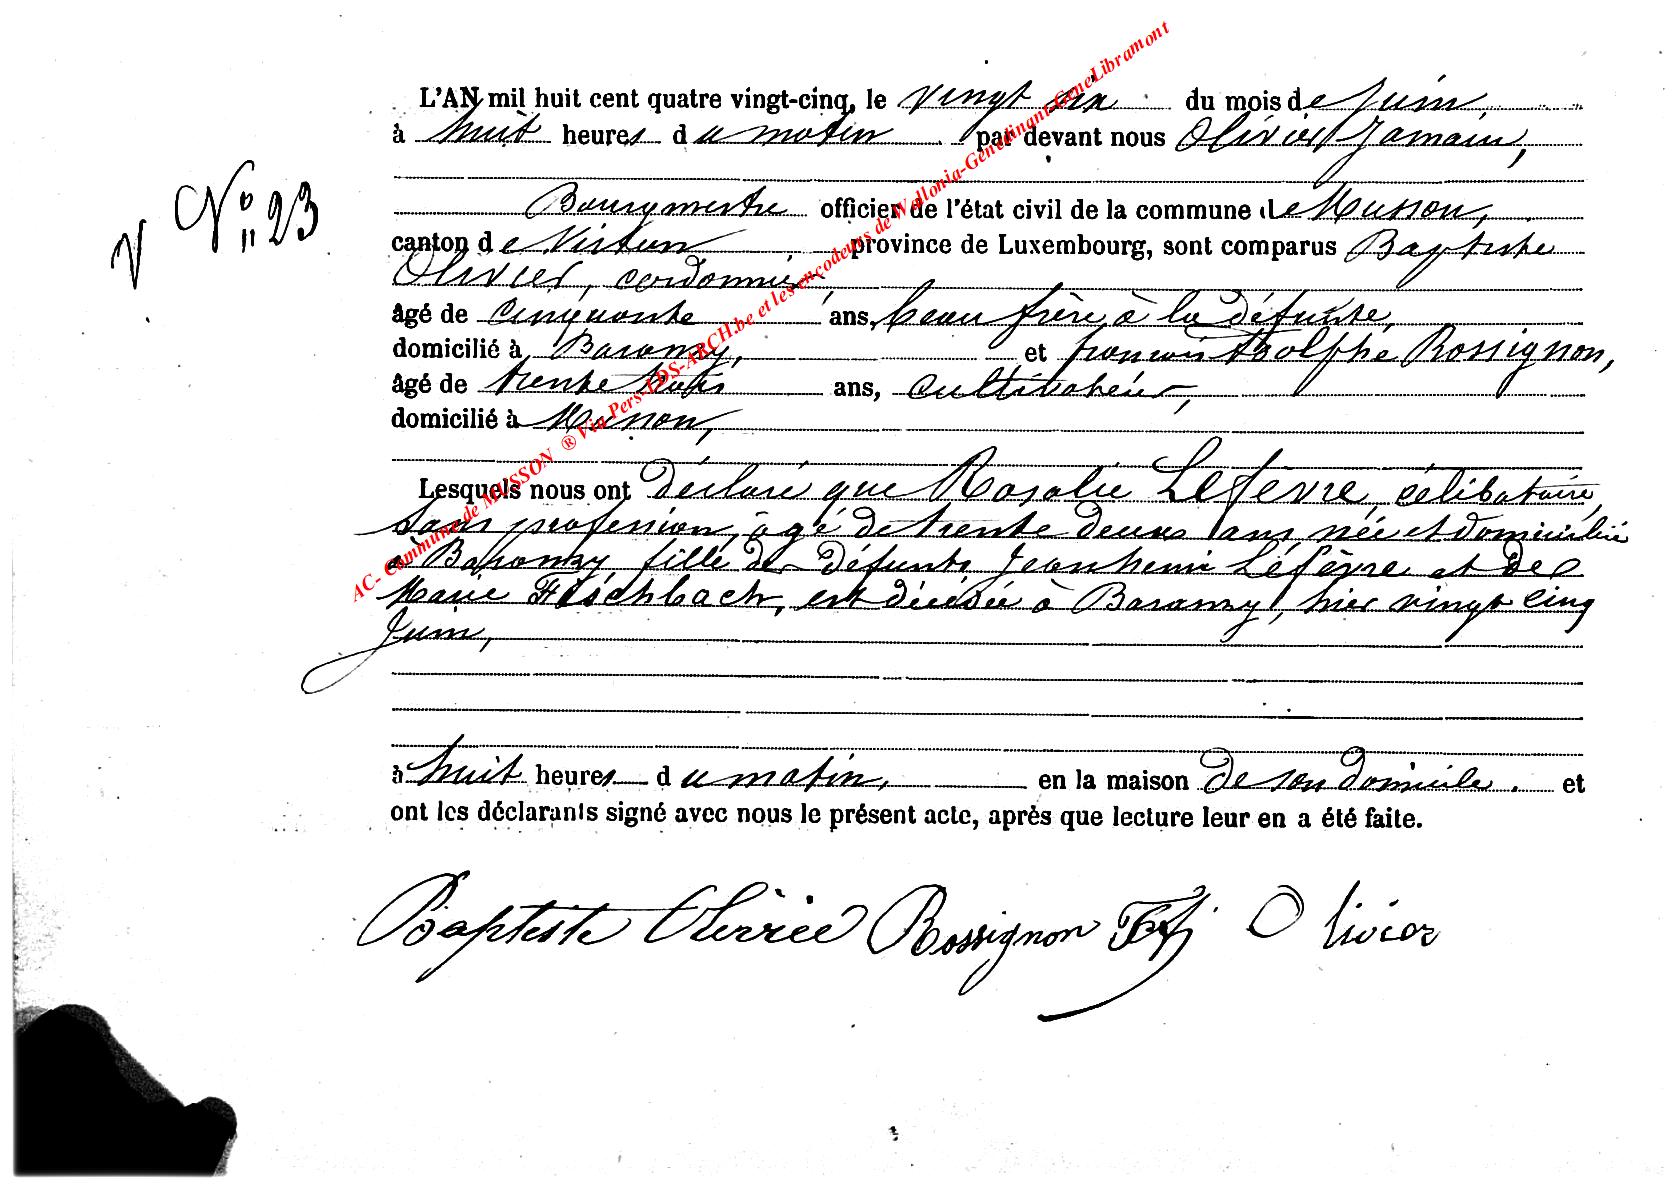 L'AN mil huit cent quatre vingt-cinq, le vingt six du mois de Juin
à huit heures du matin par devant nous Olivier Jamain,
V Nº 23
Bourgmestre officier de l'état civil de la commune de Musson,
canton de Virton province de Luxembourg, sont comparus Baptiste
Olivier, cordonnier,
âgé de cinquante ans, beau frère à la défunte,
domicilié à Baranzy, et françois Adolphe Rossignon,
âgé de trente trois ans, cultivateur,
domicilié à Musson,
Lesquels nous ont déclaré que Rosalie Lefèvre, célibataire,
sans profession, âgé de trente deux ans, née et domiciliée
à Baranzy fille des défunts Jeanhenri Lefèvre et de
Marie Fischbach, est décédée à Baranzy, hier vingt cinq
Juin,
à huit heures du matin, en la maison de son domicile. et
ont les déclarants signé avec nous le présent acte, après que lecture leur en a été faite.
Baptiste Olivier Rossignon O livier
AC- Commune de MUSSON ® Via Pers-LDS-ARCH.be et les encodeurs de Wallonia-Genedinant-GeneLibramont